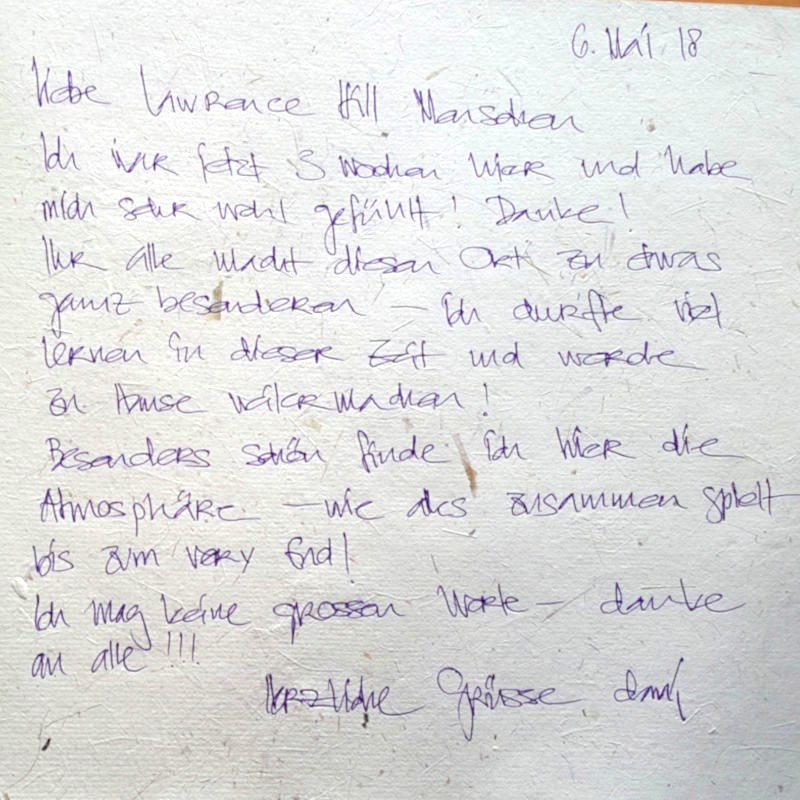 6. Mai 18
Liebe Lawrence Hill Menschen
Ich war jetzt 3 Wochen hier und habe
mich sehr wohl gefühlt! Danke!
Ihr alle macht diesen Ort zu etwas
ganz besonderen – ich durfte viel
lernen in dieser Zeit und werde
zu Hause weitermachen!
Besonders schön finde ich hier die
Atmosphäre – wie alles zusammen spielt
bis zum very End!
Ich mag keine grossen Worte – danke
an alle!!!
Herzliche Grüsse